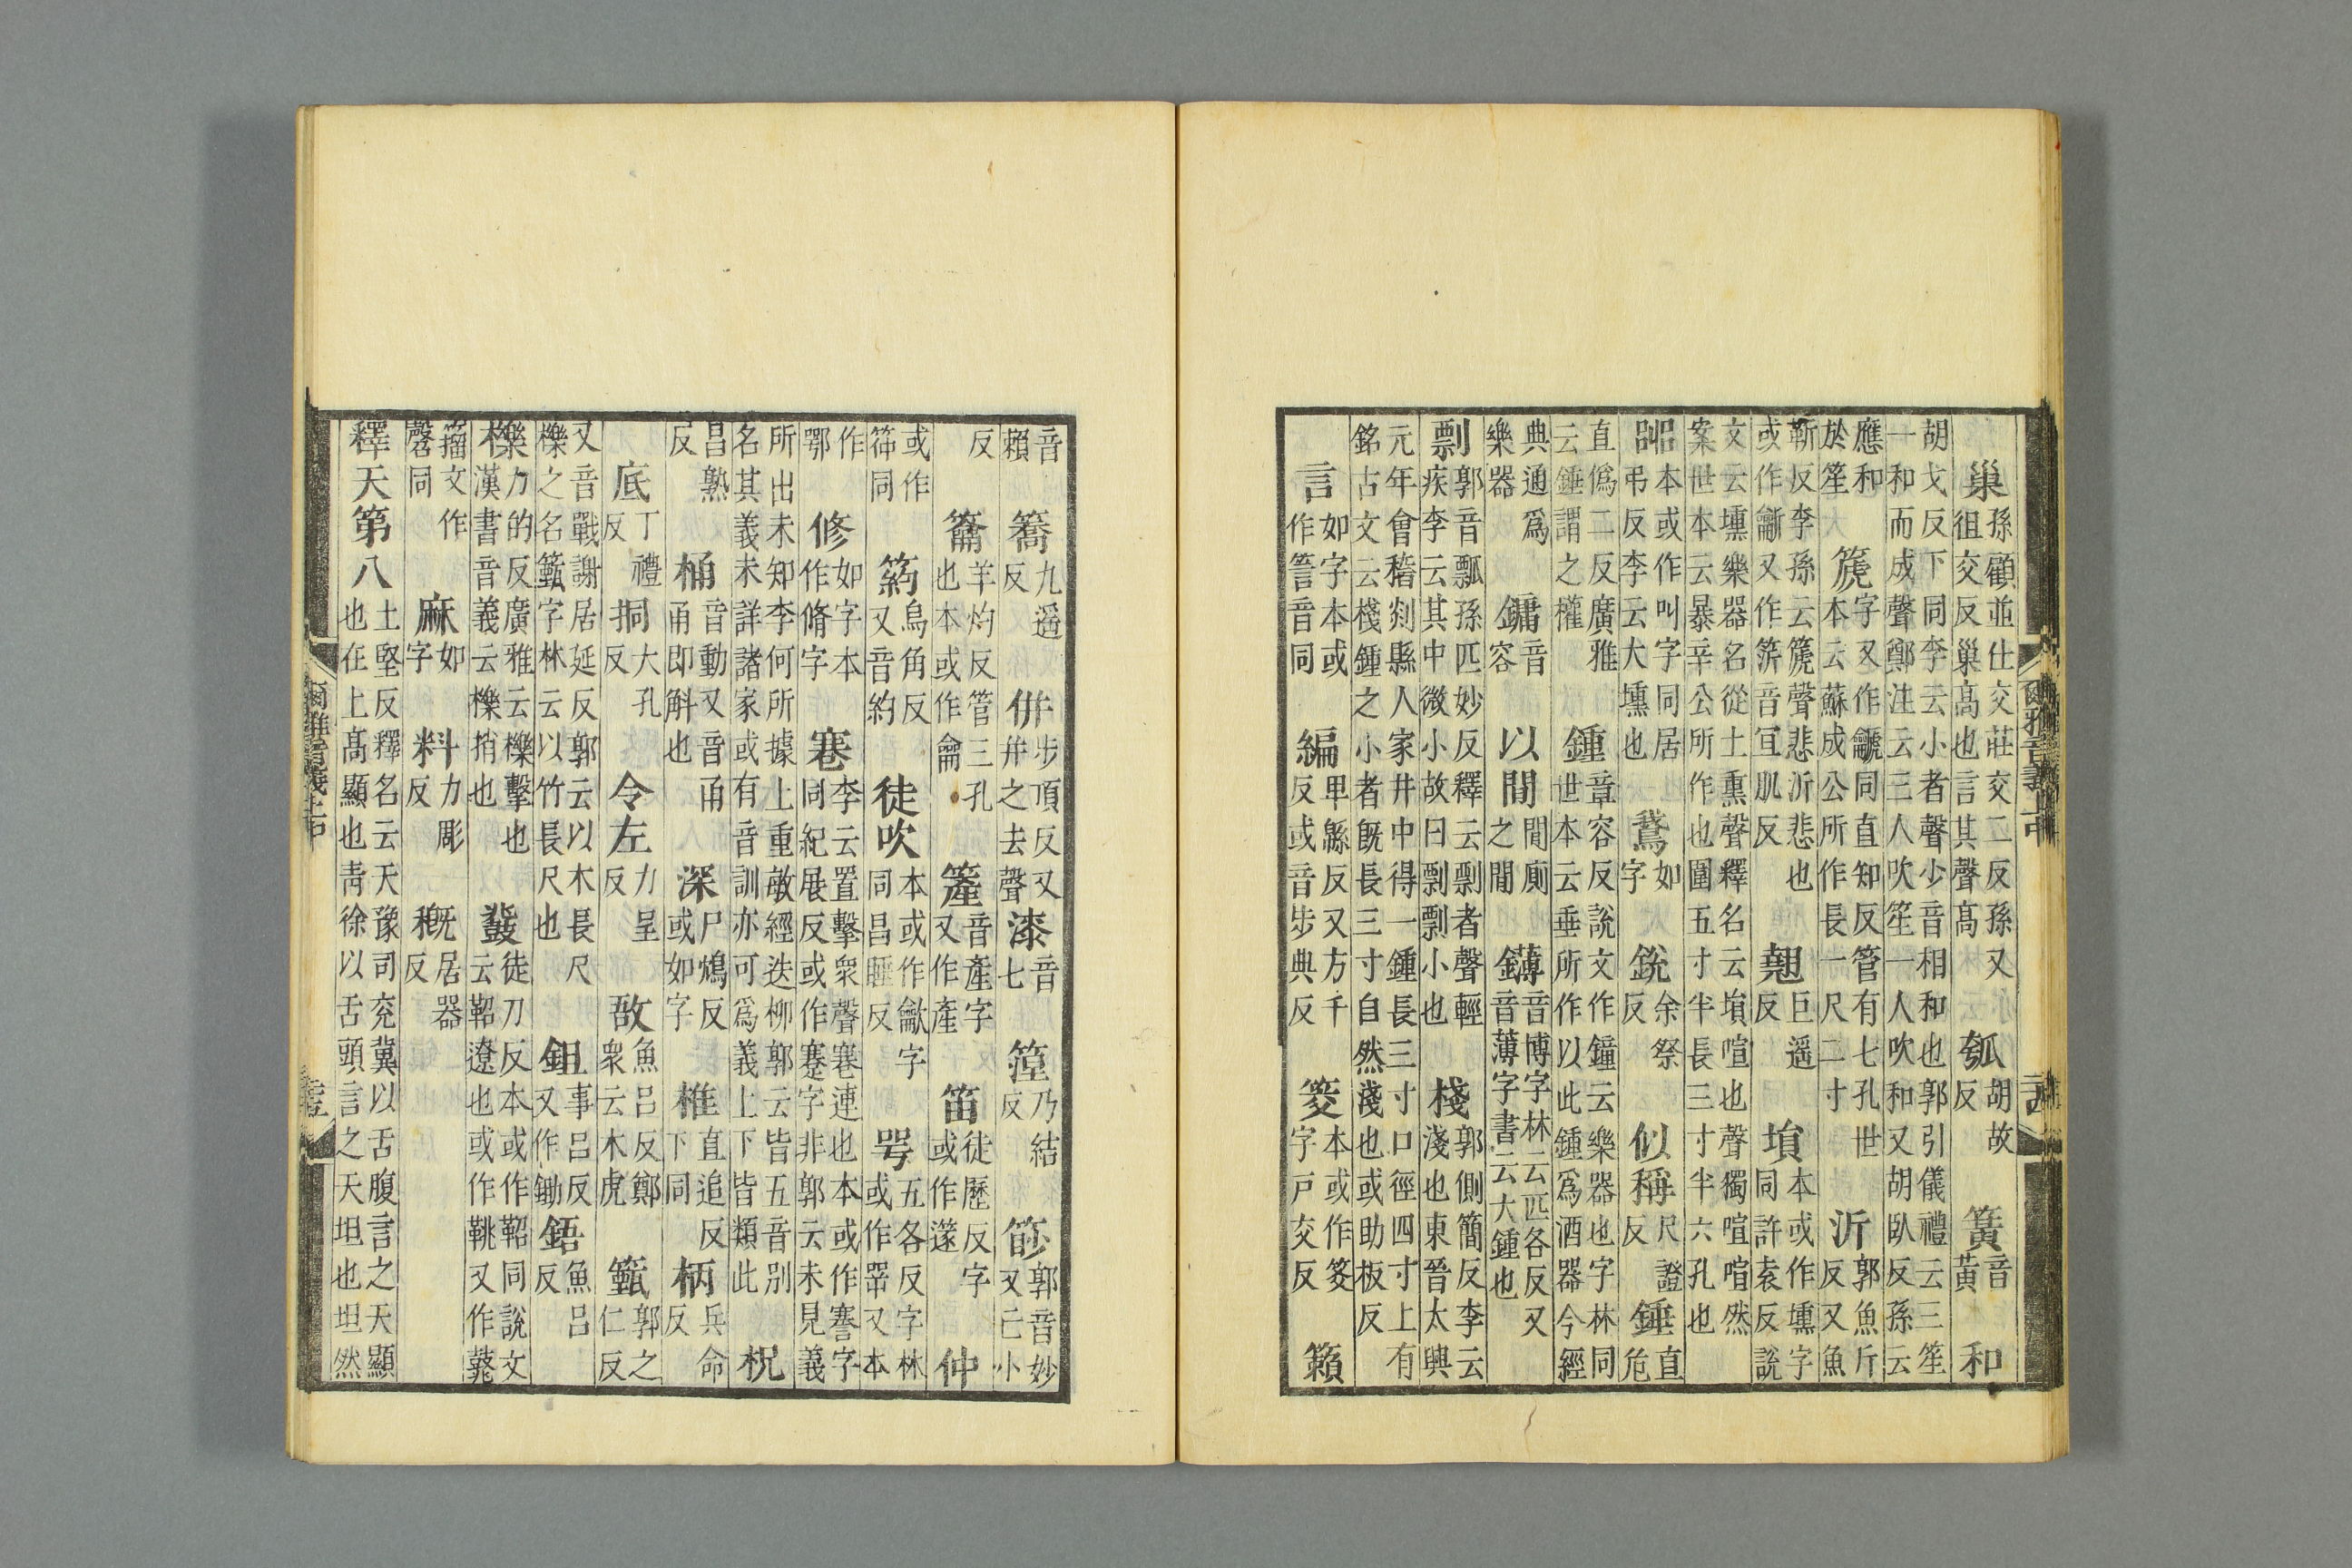 巢孫顧並仕交莊交二反孫又徂交反巢高也言其聲高瓠胡故反簧音黃和
胡戈反下同李云小者聲少音相和也郭引儀禮云三笙一和而成聲鄭注云三人吹笙一人吹和又胡臥反孫云
應和於笙篪字又作䶵同直知反管有七孔世本云蘇成公所作長一尺二寸沂郭魚斤反又魚
靳反李孫云篪聲悲沂悲也或作齗又作音宜肌反翹巨遥反塤本或作壎字同許袁反說
文云壎樂器名從土熏聲釋名云塤喧也聲獨喧喧然案世本云暴辛公所作也圍五寸半長三寸半六孔也
㗊本或作叫字同居弔反李云大壎也鵞如字銳余祭反似稱尺證反錘直危
直僞二反廣雅云錘謂之權鍾章容反說文作鐘云樂器也字林同世本云垂所作以此鍾爲酒器今經
典通爲樂器鏞音容以間間厠之間鑮音博字林云匹各反又音薄字書云大鍾也
剽郭音瓢孫匹妙反釋云剽者聲輕疾李云其中微小故曰剽剽小也棧郭側簡反李云淺也東晉太興
元年會稽剡縣人家井中得一鍾長三寸口徑四寸上有銘古文云棧鍾之小者旣長三寸自然淺也或助板反
言如字本或作䇾音同編卑緜反又方千反或音步典反筊本或作茭字戶交反籟
音賴簥九遥反併步頂反又并之去聲漆音七篞乃結反篎郭音妙又亡小
反籥羊灼反管三孔也本或作龠簅音產字又作產笛徒歷反字或作篴仲
或作筗同箹烏角反又音約徒吹本或作龡字同昌睡反咢五各反字林或作㖾又本
作鄂修如字本作脩字蹇李云置擊衆聲蹇連也本或作謇字同紀展反或作寋字非郭云未見義
所出未知李何所據上重敏經迭柳郭云皆五音別名其義未詳諸家或有音訓亦可爲義上下皆類此柷
昌熟反桶音動又音甬甬即斛也深尸鴆反或如字椎直追反下同柄兵命反
底丁禮反挏大孔反令左力呈反敔魚呂反鄭衆云木虎籈郭之仁反
又音戰謝居延反郭云以木長尺櫟之名籈字林云以竹長尺也鉏事呂反又作鋤鋙魚呂反
櫟力的反廣雅云櫟擊也漢書音義云櫟捎也鼗徒刀反本或作鞀同說文云鞀遼也或作鞉又作鼗
籀文作磬同麻如字料力彫反穊旣居器反
釋天第八土堅反釋名云天豫司兗冀以舌腹言之天顯也在上高顯也靑徐以舌頭言之天坦也坦然